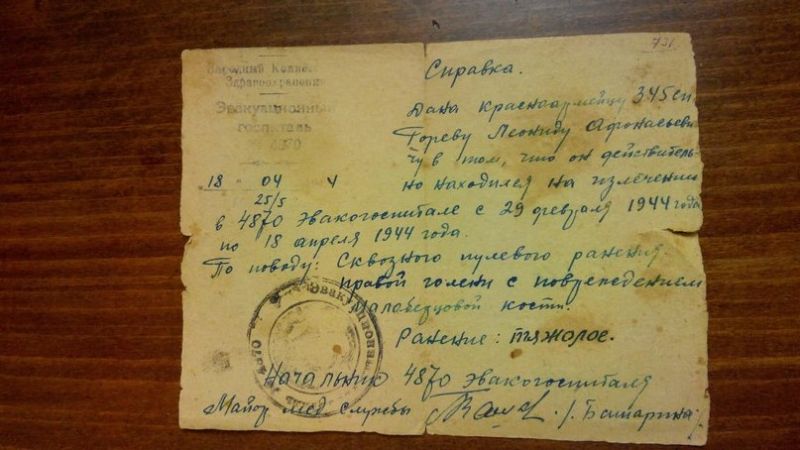 731
Народный Комисс
Здравоохранения
Эвакуационный
госпиталь
4870
18 " 04 4
25/5
Справка.
Дана красноармейцу 345 сп
Гореву Леониду Афонасьеви
чу в том, что он действитель-
но находился на излечении
в 4870 Эвакогоспитале с 29 февраля 1944 года
по 18 апреля 1944 года.
По поводу: Сквозного пулевого ранения
правой голени с повреждением
Малоберцовой кости.
Ранение: тяжолое.
Начальник 4870 Эвакогоспиталя
Майор мед. службы /. Башарина /.
Эвакуационный
4870